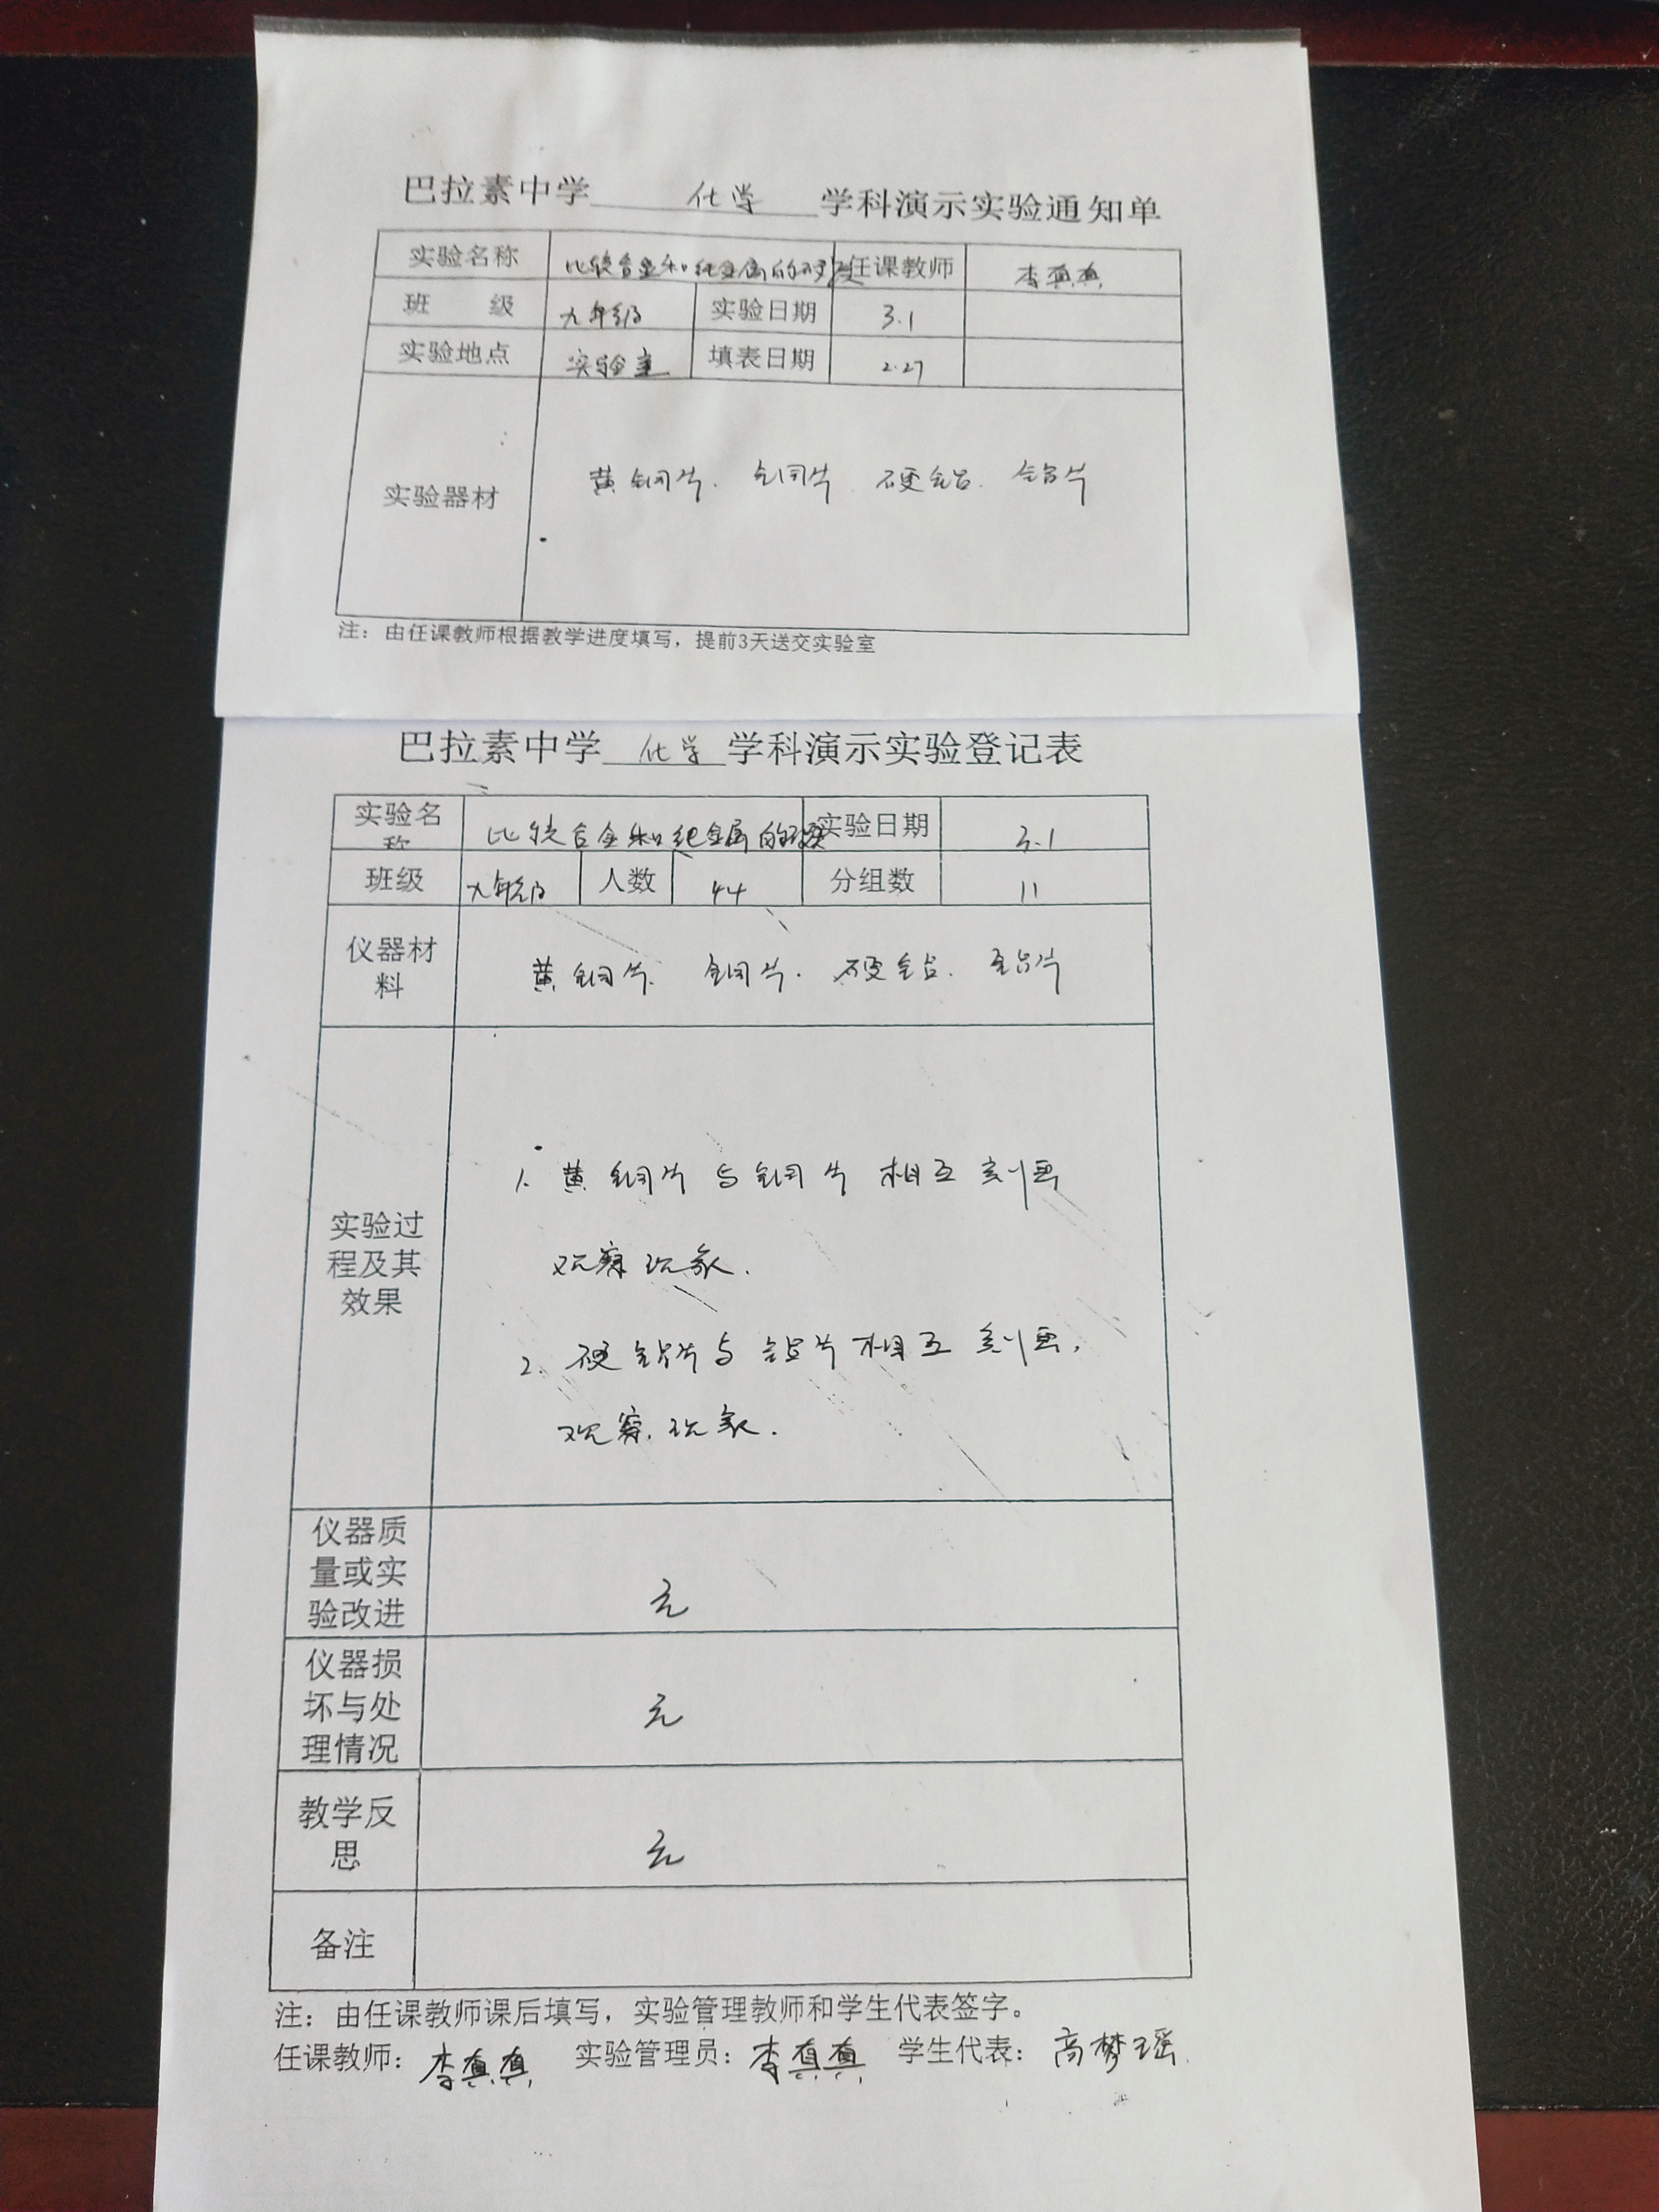 巴拉素中学 化学 学科演示实验通知单
实验名称 比较合金和纯金属的硬度 任课教师 李真真
班 级 九年级 实验日期 3.1
实验地点 实验室 填表日期 2.27
实验器材 黄铜片. 铜片. 硬铝. 铝片
注：由任课教师根据教学进度填写，提前3天送交实验室
巴拉素中学 化学 学科演示实验登记表
实验名称 比较合金和纯金属的硬度 实验日期 3.1
班级 九年级 人数 44 分组数 11
仪器材料 黄铜片. 铜片. 硬铝. 铝片
实验过程及其效果
1. 黄铜片与铜片相互刻画
观察现象.
2. 硬铝片与铝片相互刻画,
观察现象.
仪器质量或实验改进 无
仪器损坏与处理情况 无
教学反思 无
备注
注：由任课教师课后填写，实验管理教师和学生代表签字。
任课教师：李真真 实验管理员：李真真 学生代表：高梦瑶